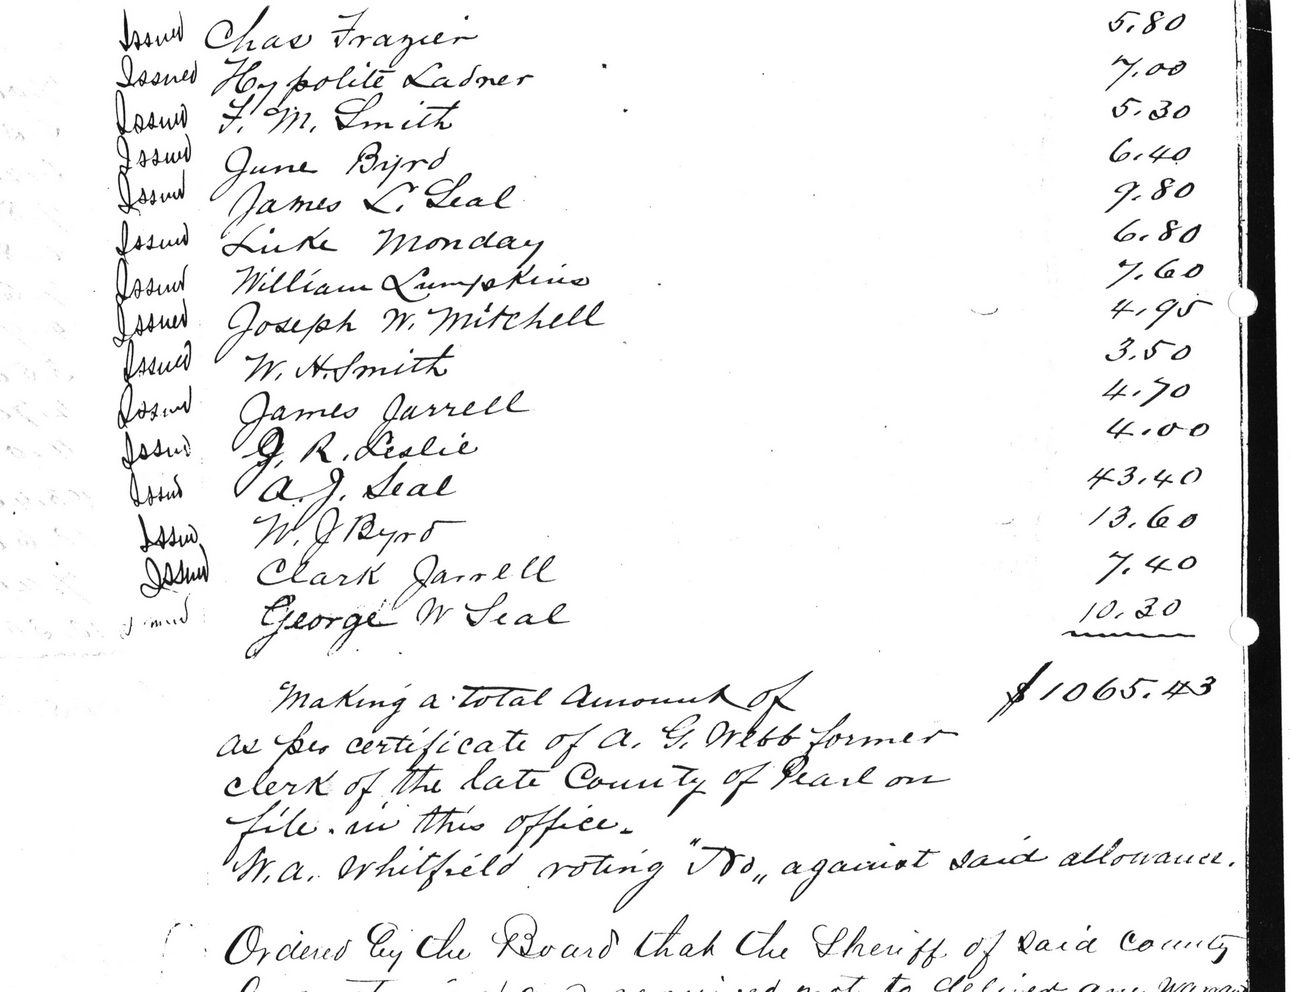 Issued Chas Frazier 5.80
Issued Hypolite Ladner 7.00
Issued F. M. Smith 5.30
Issued June Byrd 6.40
Issued James L. Seal 9.80
Issued Luke Monday 6.80
Issued William Lumpkins 7.60
Issued Joseph W. Mitchell 4.95
Issued W. H. Smith 3.50
Issued James Jarrell 4.70
Issued J. R. Leslie 4.00
Issued A. J. Seal 43.40
Issued W. J Byrd 13.60
Issued Clark Jarrell 7.40
George W Seal 10.30
Making a total Amount of $1065.43
as per certificate of A. G. Webb former
clerk of the late County of Pearl on
file in this office.
W. A. Whitfield voting "No" against said allowance.
Ordered by the Board that the Sheriff of said county
required not to deliver any